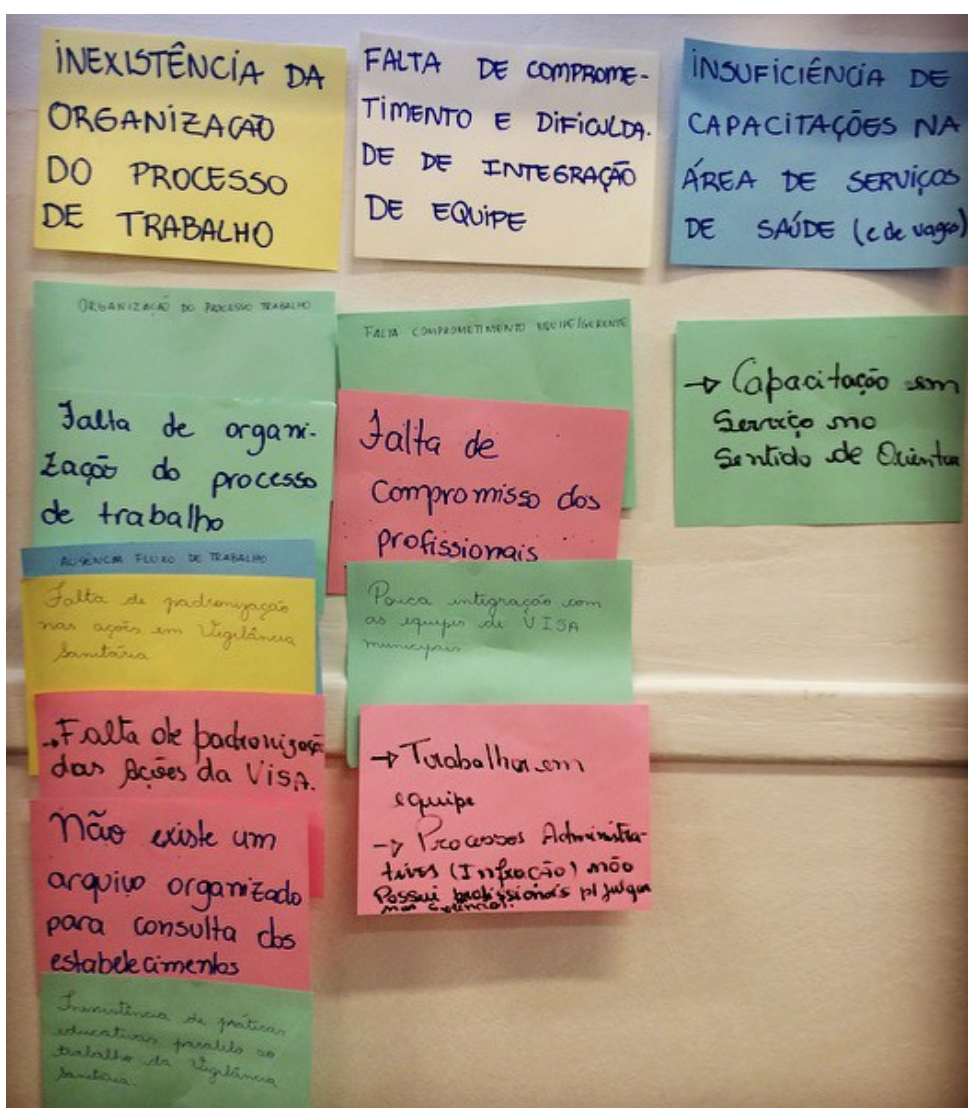 INEXISTÊNCIA DA
ORGANIZAÇÃO
DO PROCESSO
DE TRABALHO
ORGANIZAÇÃO DO PROCESSO TRABALHO
Falta de organi-
zação do processo
de trabalho
AUSÊNCIA FLUXO DE TRABALHO
Falta de padronização
nas ações em Vigilância
Sanitária
→ Falta de padronização
das Ações da VISA.
Não existe um
arquivo organizado
para consulta dos
estabelecimentos
Inexistência de práticas
educativas paralelo ao
trabalho da Vigilância
Sanitária.
FALTA DE COMPROME-
TIMENTO E DIFICULDA-
DE DE INTEGRAÇÃO
DE EQUIPE
FALTA COMPROMETIMENTO EQUIPE/GERENTE
Falta de
compromisso dos
profissionais
Pouca integração com
as equipes de VISA
municipais
→ Trabalhar em
equipe
→ Processos Administra-
tivos (Infração) não
Possui profissionais p/ julgar
INSUFICIÊNCIA DE
CAPACITAÇÕES NA
ÁREA DE SERVIÇOS
DE SAÚDE (e de vagas)
→ Capacitação em
Serviço no
Sentido de Orientar